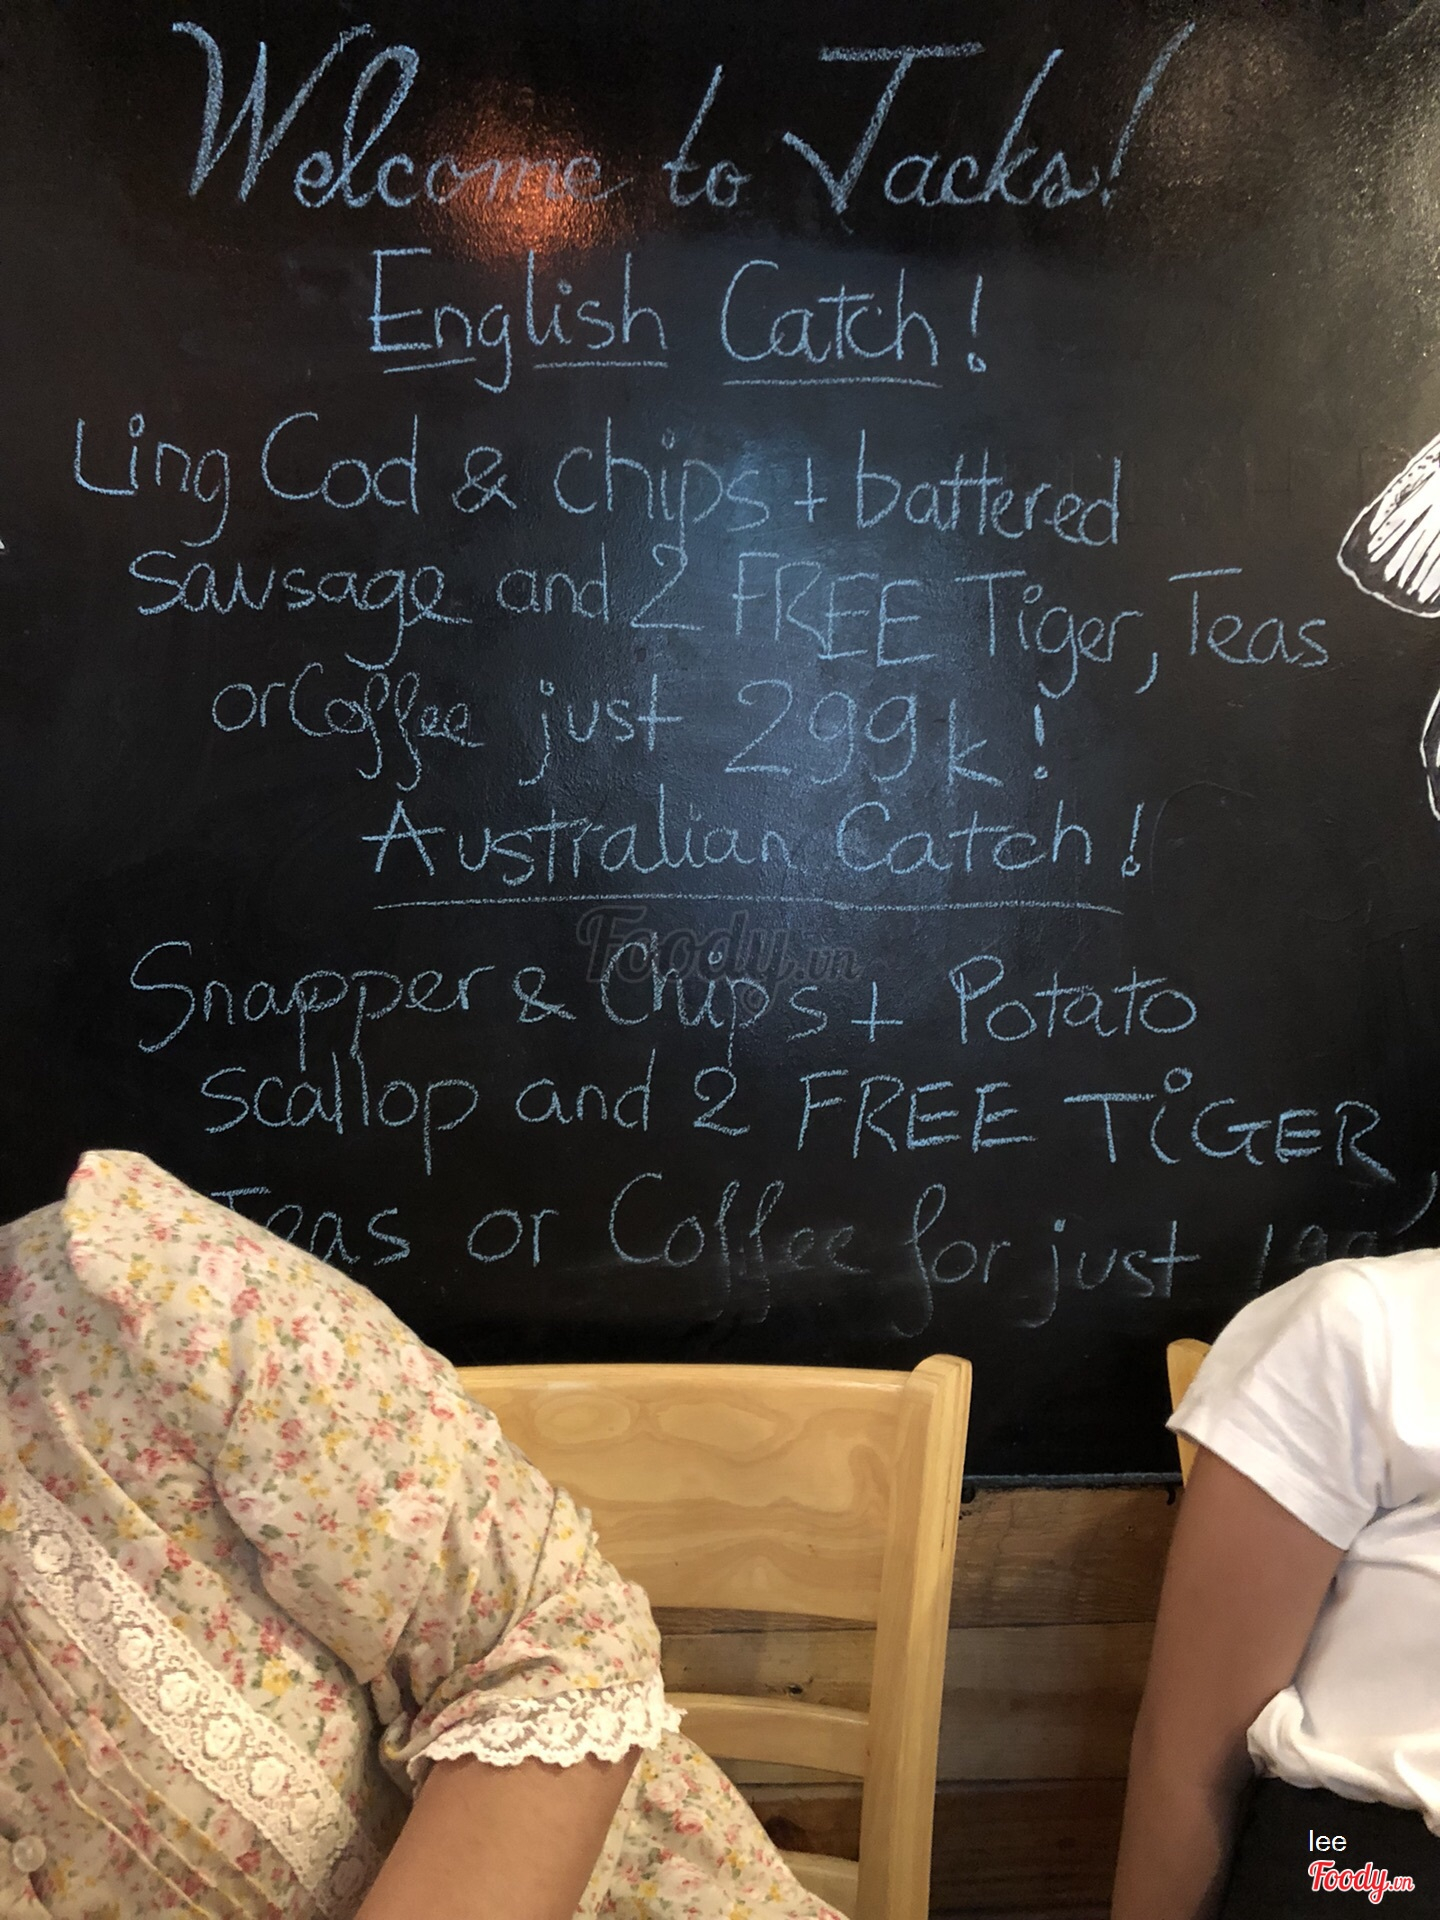 Welcome to Jacks!
English Catch!
Ling Cod & chips + battered
sausage and 2 FREE Tiger, Teas
or Coffee just 299k!
Australian Catch!
Foody.vn
Snapper & Chips + Potato
scallop and 2 FREE TiGER,
Teas or Coffee for just
lee
Foody.vn